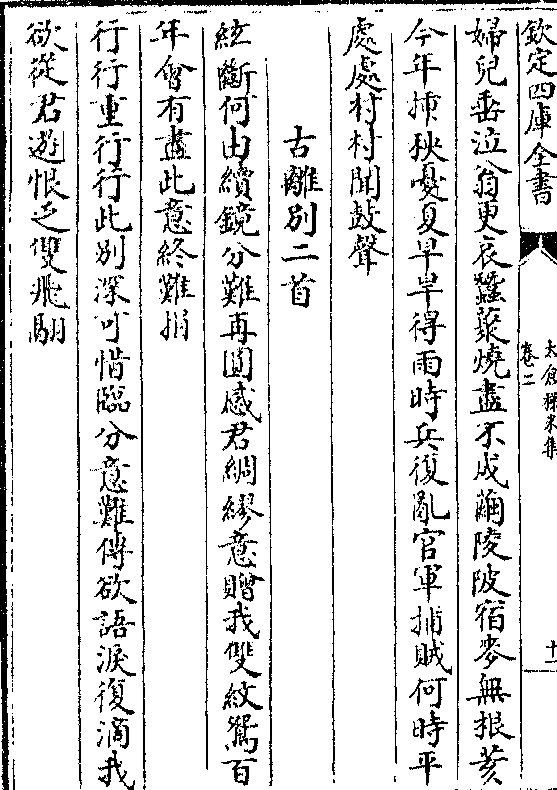 欽定四庫全書
太倉稊米集
卷二
十二
婦兒垂泣翁更哀蠶蔟燒盡不成繭陵陂宿麥無根荄
今年揷秧憂夏旱旱得雨時兵復亂官軍捕賊何時平
處處村村聞鼓聲
古離別二首
絃斷何由續鏡分難再圓感君綢繆意贈我雙紋鴛百
年會有盡此意終難捐
行行重行行此別深可惜臨分意難傳欲語淚復滴我
欲從君遊恨乏雙飛翮